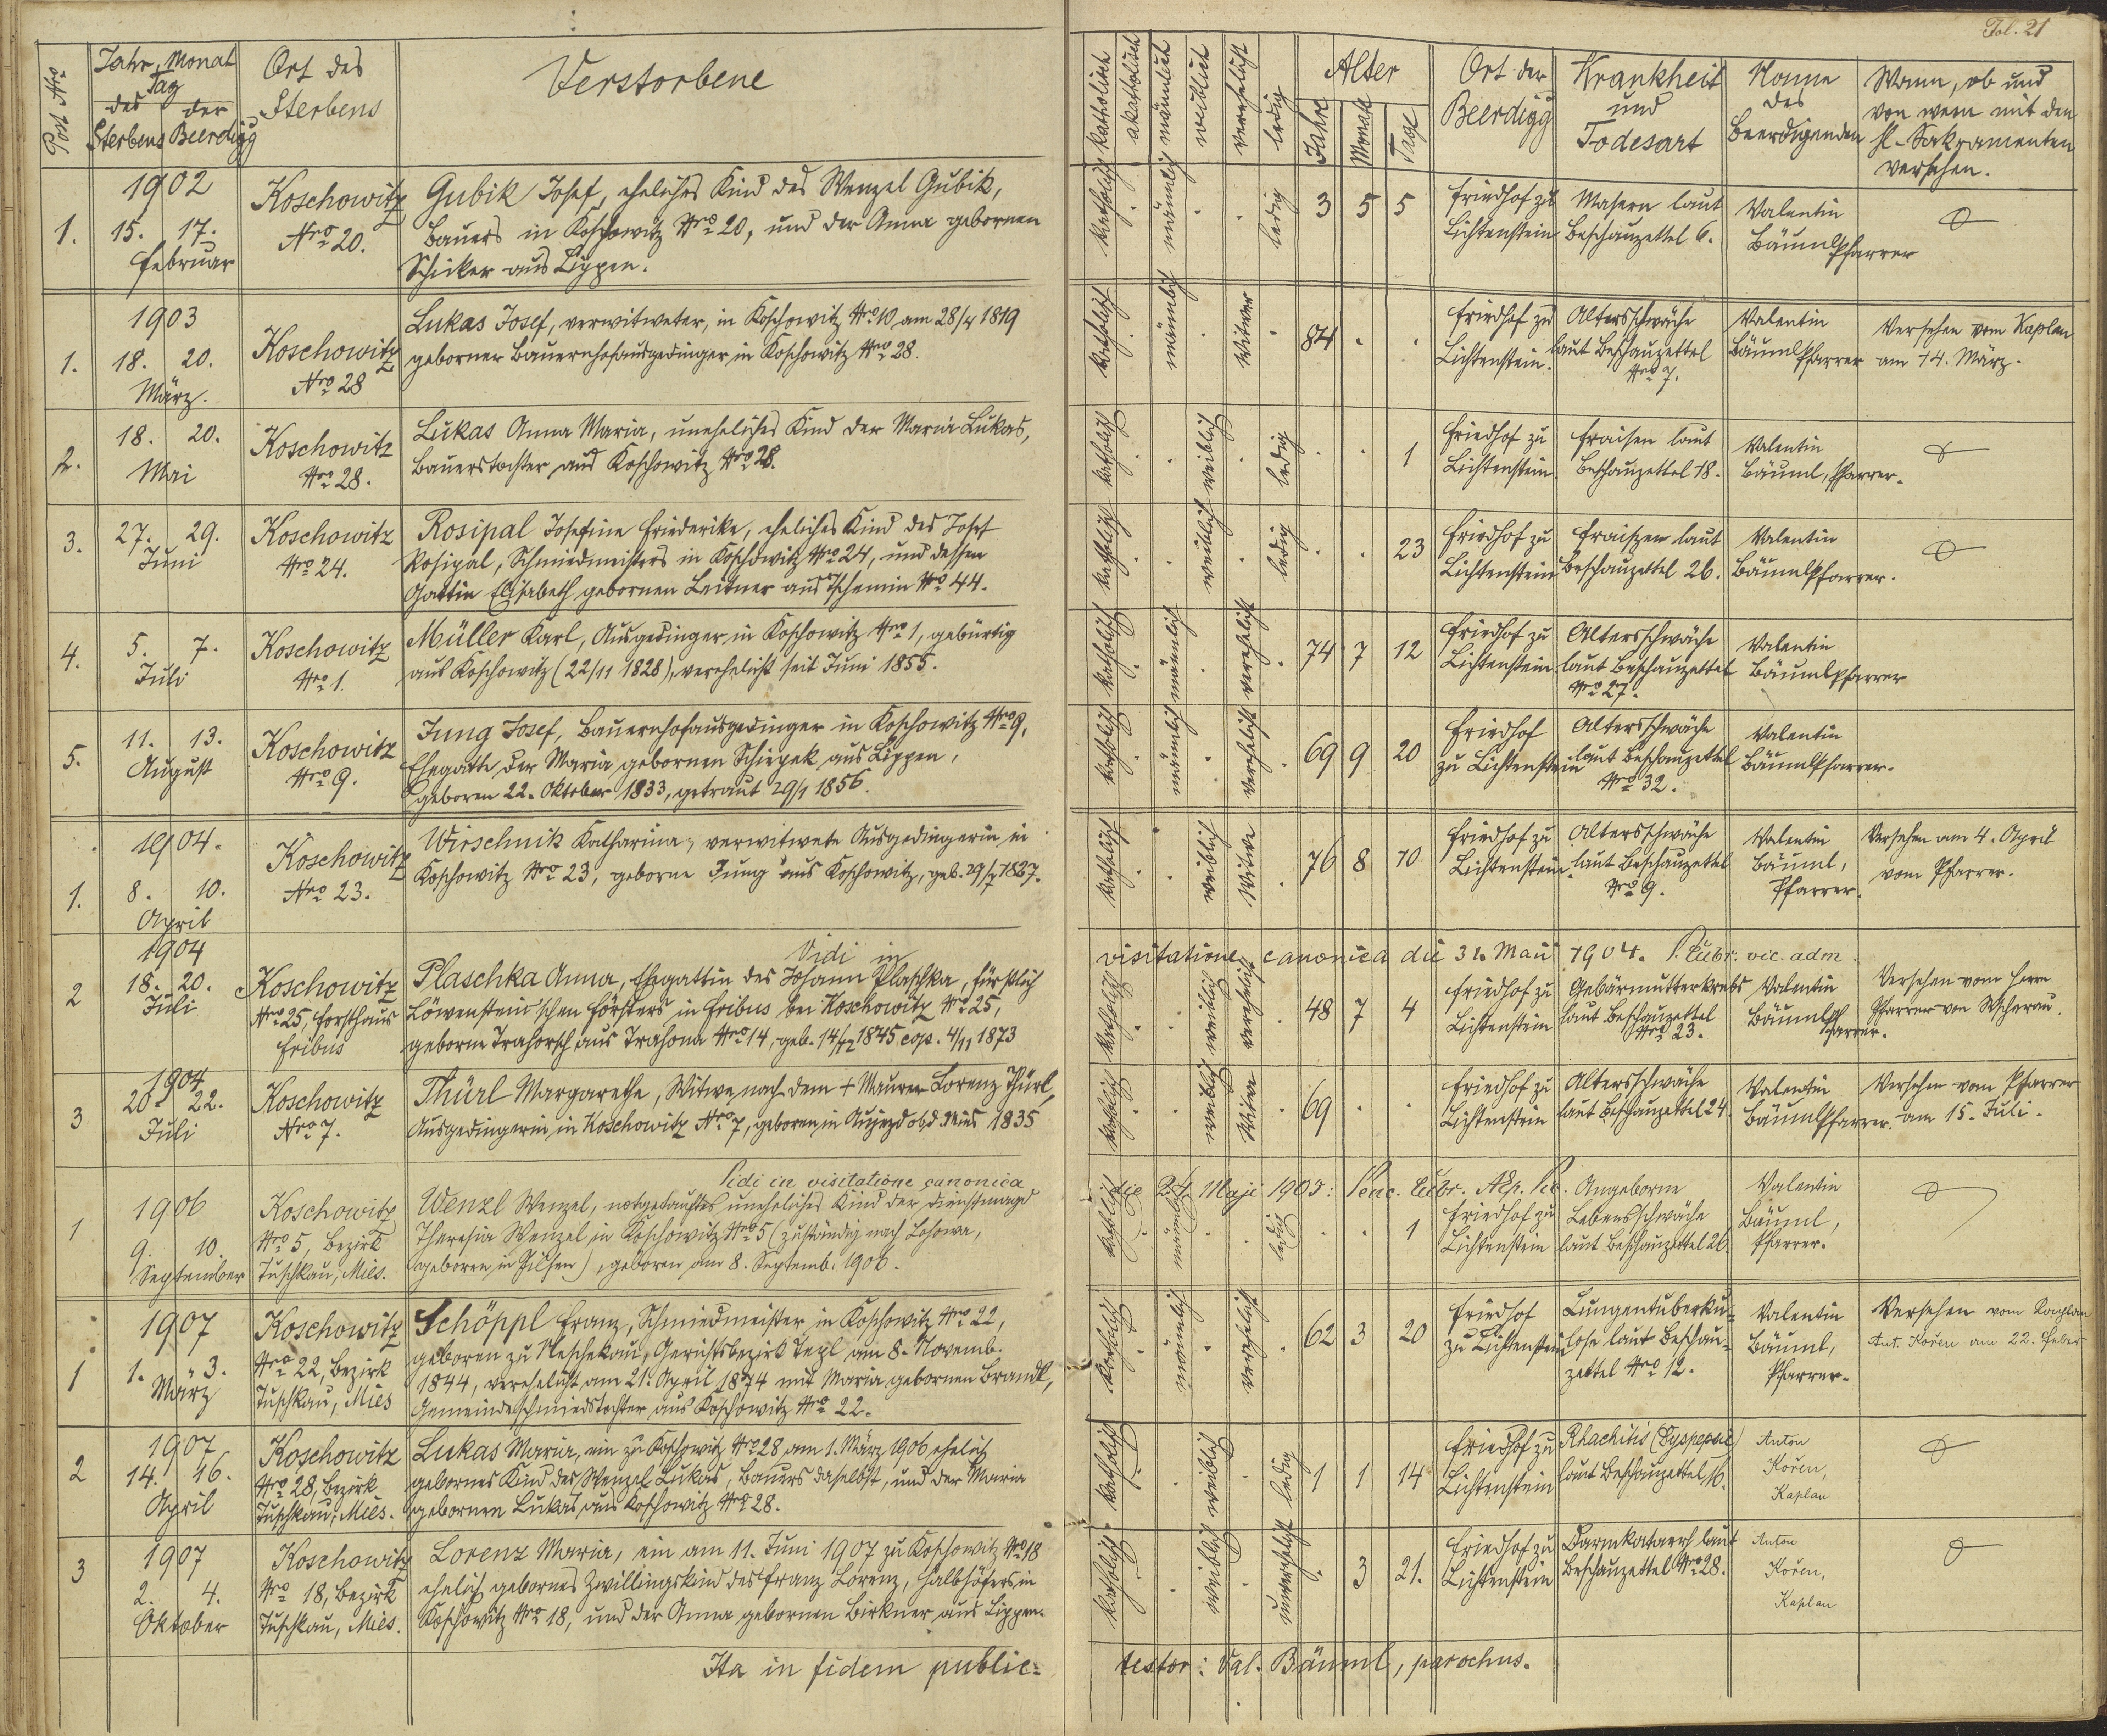 Fol. 21
Post Nro
Jahr, Monat
Tag
des der
Sterbens Beerdigg
Ort des
Sterbens
Verstorbene
katholisch
akatholisch
männlich
weiblich
verehelicht
ledig
Alter
Jahre
Monate
Tage
Ort der
Beerdigg
Krankheit
und
Todesart
Name
des
Beerdigenden
Wann, ob und
von wem mit den
hl. Sakramenten
versehen.
1.
1902
15. 17.
Februar
Koschowitz
Nro 20.
Gubik Josef, eheliches Kind des Wenzel Gubik,
Bauers in Koschowitz Nro 20, und der Anna gebornen
Schicker aus Lippen.
katholisch männlich ledig 3 5 5
Friedhof zu
Lichtenstein
Masern laut
Beschauzettel 6.
Valentin
Bäuml Pfarrer
1.
1903
18. 20.
März.
Koschowitz
Nro 28
Lukas Josef, verwitweter, in Koschowitz Nro 10 am 28/4 1819
geborner Bauernhofausgedinger in Koschowitz Nro 28.
katholisch männlich Witwer 84 . .
Friedhof zu
Lichtenstein.
Altersschwäche
laut Beschauzettel
Nro 7.
Valentin
Bäuml Pfarrer
Versehen vom Kaplan
am 14. März.
2.
18. 20.
Mai
Koschowitz
Nro 28.
Lukas Anna Maria, uneheliches Kind der Maria Lukas,
Bauerstochter aus Koschowitz Nro 28.
katholisch weiblich ledig . . 1
Friedhof zu
Lichtenstein.
Fraisen laut
Beschauzettel 18.
Valentin
Bäuml, Pfarrer.
3.
27. 29.
Juni
Koschowitz
Nro 24.
Rosipal Josefine Friederike, eheliches Kind des Josef
Rosipal, Schmiedmeisters in Koschowitz Nro 24, und dessen
Gattin Elisabeth gebornen Leitner aus Tschemin Nro 44.
katholisch weiblich ledig . . 23
Friedhof zu
Lichtenstein
Fraisen laut
Beschauzettel 26.
Valentin
Bäuml Pfarrer.
4.
5. 7.
Juli
Koschowitz
Nro 1.
Müller Karl, Ausgedinger in Koschowitz Nro 1, gebürtig
aus Koschowitz (22/11 1828), verehelicht seit Juni 1855.
katholisch männlich verehelicht 74 7 12
Friedhof zu
Lichtenstein
Altersschwäche
laut Beschauzettel
Nro 27.
Valentin
Bäuml Pfarrer
5.
11. 13.
August
Koschowitz
Nro 9.
Jung Josef, Bauernhofausgedinger in Koschowitz Nro 9,
Ehegatte der Maria gebornen Schiepek aus Lippen,
geboren 22. Oktober 1833, getraut 29/1 1856.
katholisch männlich verehelicht 69 9 20
Friedhof
zu Lichtenstein
Altersschwäche
laut Beschauzettel
Nro 32.
Valentin
Bäuml Pfarrer.
1.
1904.
8. 10.
April
Koschowitz
Nro 23.
Wirschnik Katharina, verwitwete Ausgedingerin in
Koschowitz Nro 23, geborne Jung aus Koschowitz, geb. 29/7 1827.
katholisch weiblich Witwe 76 8 10
Friedhof zu
Lichtenstein.
Altersschwäche
laut Beschauzettel
Nro 9.
Valentin
Bäuml,
Pfarrer.
Versehen am 4. April
vom Pfarrer.
Vidi in visitatione canonica die 31. Maii 1904. vic. adm.
2
1904
18. 20.
Juli
Koschowitz
Nro 25, Forsthaus
Fribus
Plaschka Anna, Ehegattin des Johann Plaschka, fürstlich
Löwenstein'schen Försters in Fribus bei Koschowitz Nro 25,
geborne Trahorsch aus Trahona Nro 14, geb. 14/12 1845 cop. 4/11 1873
katholisch weiblich verehelicht 48 7 4
Friedhof zu
Lichtenstein
Gebärmutterkrebs
laut Beschauzettel
Nro 23.
Valentin
Bäuml
Pfarrer.
Versehen vom Herrn
Pfarrer von Wscherau.
3
1904
20. 22.
Juli
Koschowitz
Nro 7.
Thürl Margarethe, Witwe nach dem + Maurer Lorenz Thürl,
Ausgedingerin in Koschowitz Nro 7, geboren in Aujezd ob d Mies 1835
katholisch weiblich Witwe 69 . .
Friedhof zu
Lichtenstein
Altersschwäche
laut Beschauzettel 24.
Valentin
Bäuml Pfarrer.
Versehen vom Pfarrer
am 15. Juli.
Vidi in visitatione canonica die 24 Maji 1905:
1
1906
9. 10.
September
Koschowitz
Nro 5, Bezirk
Tuschkau, Mies.
Wenzl Wenzel, notgetauftes uneheliches Kind der Dienstmagd
Theresia Wenzel in Koschowitz Nro 5 (zuständig nach Lohowa,
geboren in Pilsen), geboren am 8. Septemb. 1906.
katholisch männlich ledig . . 1
Friedhof zu
Lichtenstein
Angeborne
Lebensschwäche
laut Beschauzettel 26.
Valentin
Bäuml,
Pfarrer.
1
1907
1. 3.
März
Koschowitz
Nro 22, Bezirk
Tuschkau, Mies
Schöppl Franz, Schmiedmeister in Koschowitz Nro 22,
geboren zu Neschekau, Gerichtsbezirk Tepl am 8. Novemb.
1844, verehelicht am 21. April 1874 mit Maria gebornen Brandl,
Gemeindeschmiedstochter aus Koschowitz Nro 22.
katholisch männlich verehelicht 62 3 20
Friedhof
zu Lichtenstein
Lungentuberku-
lose laut Beschau-
zettel Nro 12.
Valentin
Bäuml,
Pfarrer.
Versehen vom Kaplan
Ant. Kořen am 22. Feber
2
1907
14. 16.
April
Koschowitz
Nro 28, Bezirk
Tuschkau, Mies.
Lukas Maria, ein zu Koschowitz Nro 28 am 1. März 1906 ehelich
gebornes Kind des Wenzel Lukas, Bauers daselbst, und der Maria
gebornen Lukas aus Koschowitz Nro 28.
katholisch weiblich ledig 1 1 14
Friedhof zu
Lichtenstein
Rhachitis (Dyspepsie)
laut Beschauzettel 16.
Anton
Kořen,
Kaplan
3
1907
2. 4.
Oktober
Koschowitz
Nro 18, Bezirk
Tuschkau, Mies.
Lorenz Maria, ein am 11. Juni 1907 zu Koschowitz Nro 18
ehelich gebornes Zwillingskind des Franz Lorenz, Halbhöfers in
Koschowitz Nro 18, und der Anna gebornen Birkner aus Lippen.
katholisch weiblich unverehelicht . 3 21.
Friedhof zu
Lichtenstein
Darmkatarrh laut
Beschauzettel Nro 28.
Anton
Kořen,
Kaplan
Ita in fidem public=
testor: Val. Bäuml, parochus.